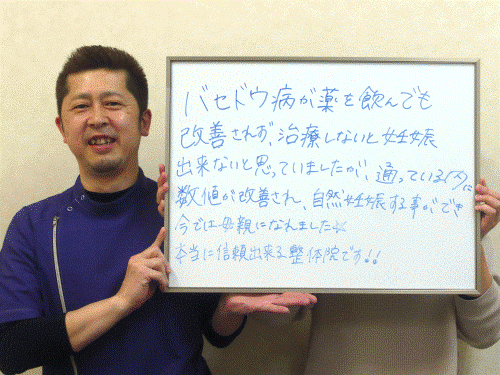 バセドウ病が薬を飲んでも
改善されず、治療しないと妊娠
出来ないと思っていましたが、通っている内に
数値が改善され、自然妊娠する事ができ
今では母親になれました☆
本当に信頼出来る整体院です!!